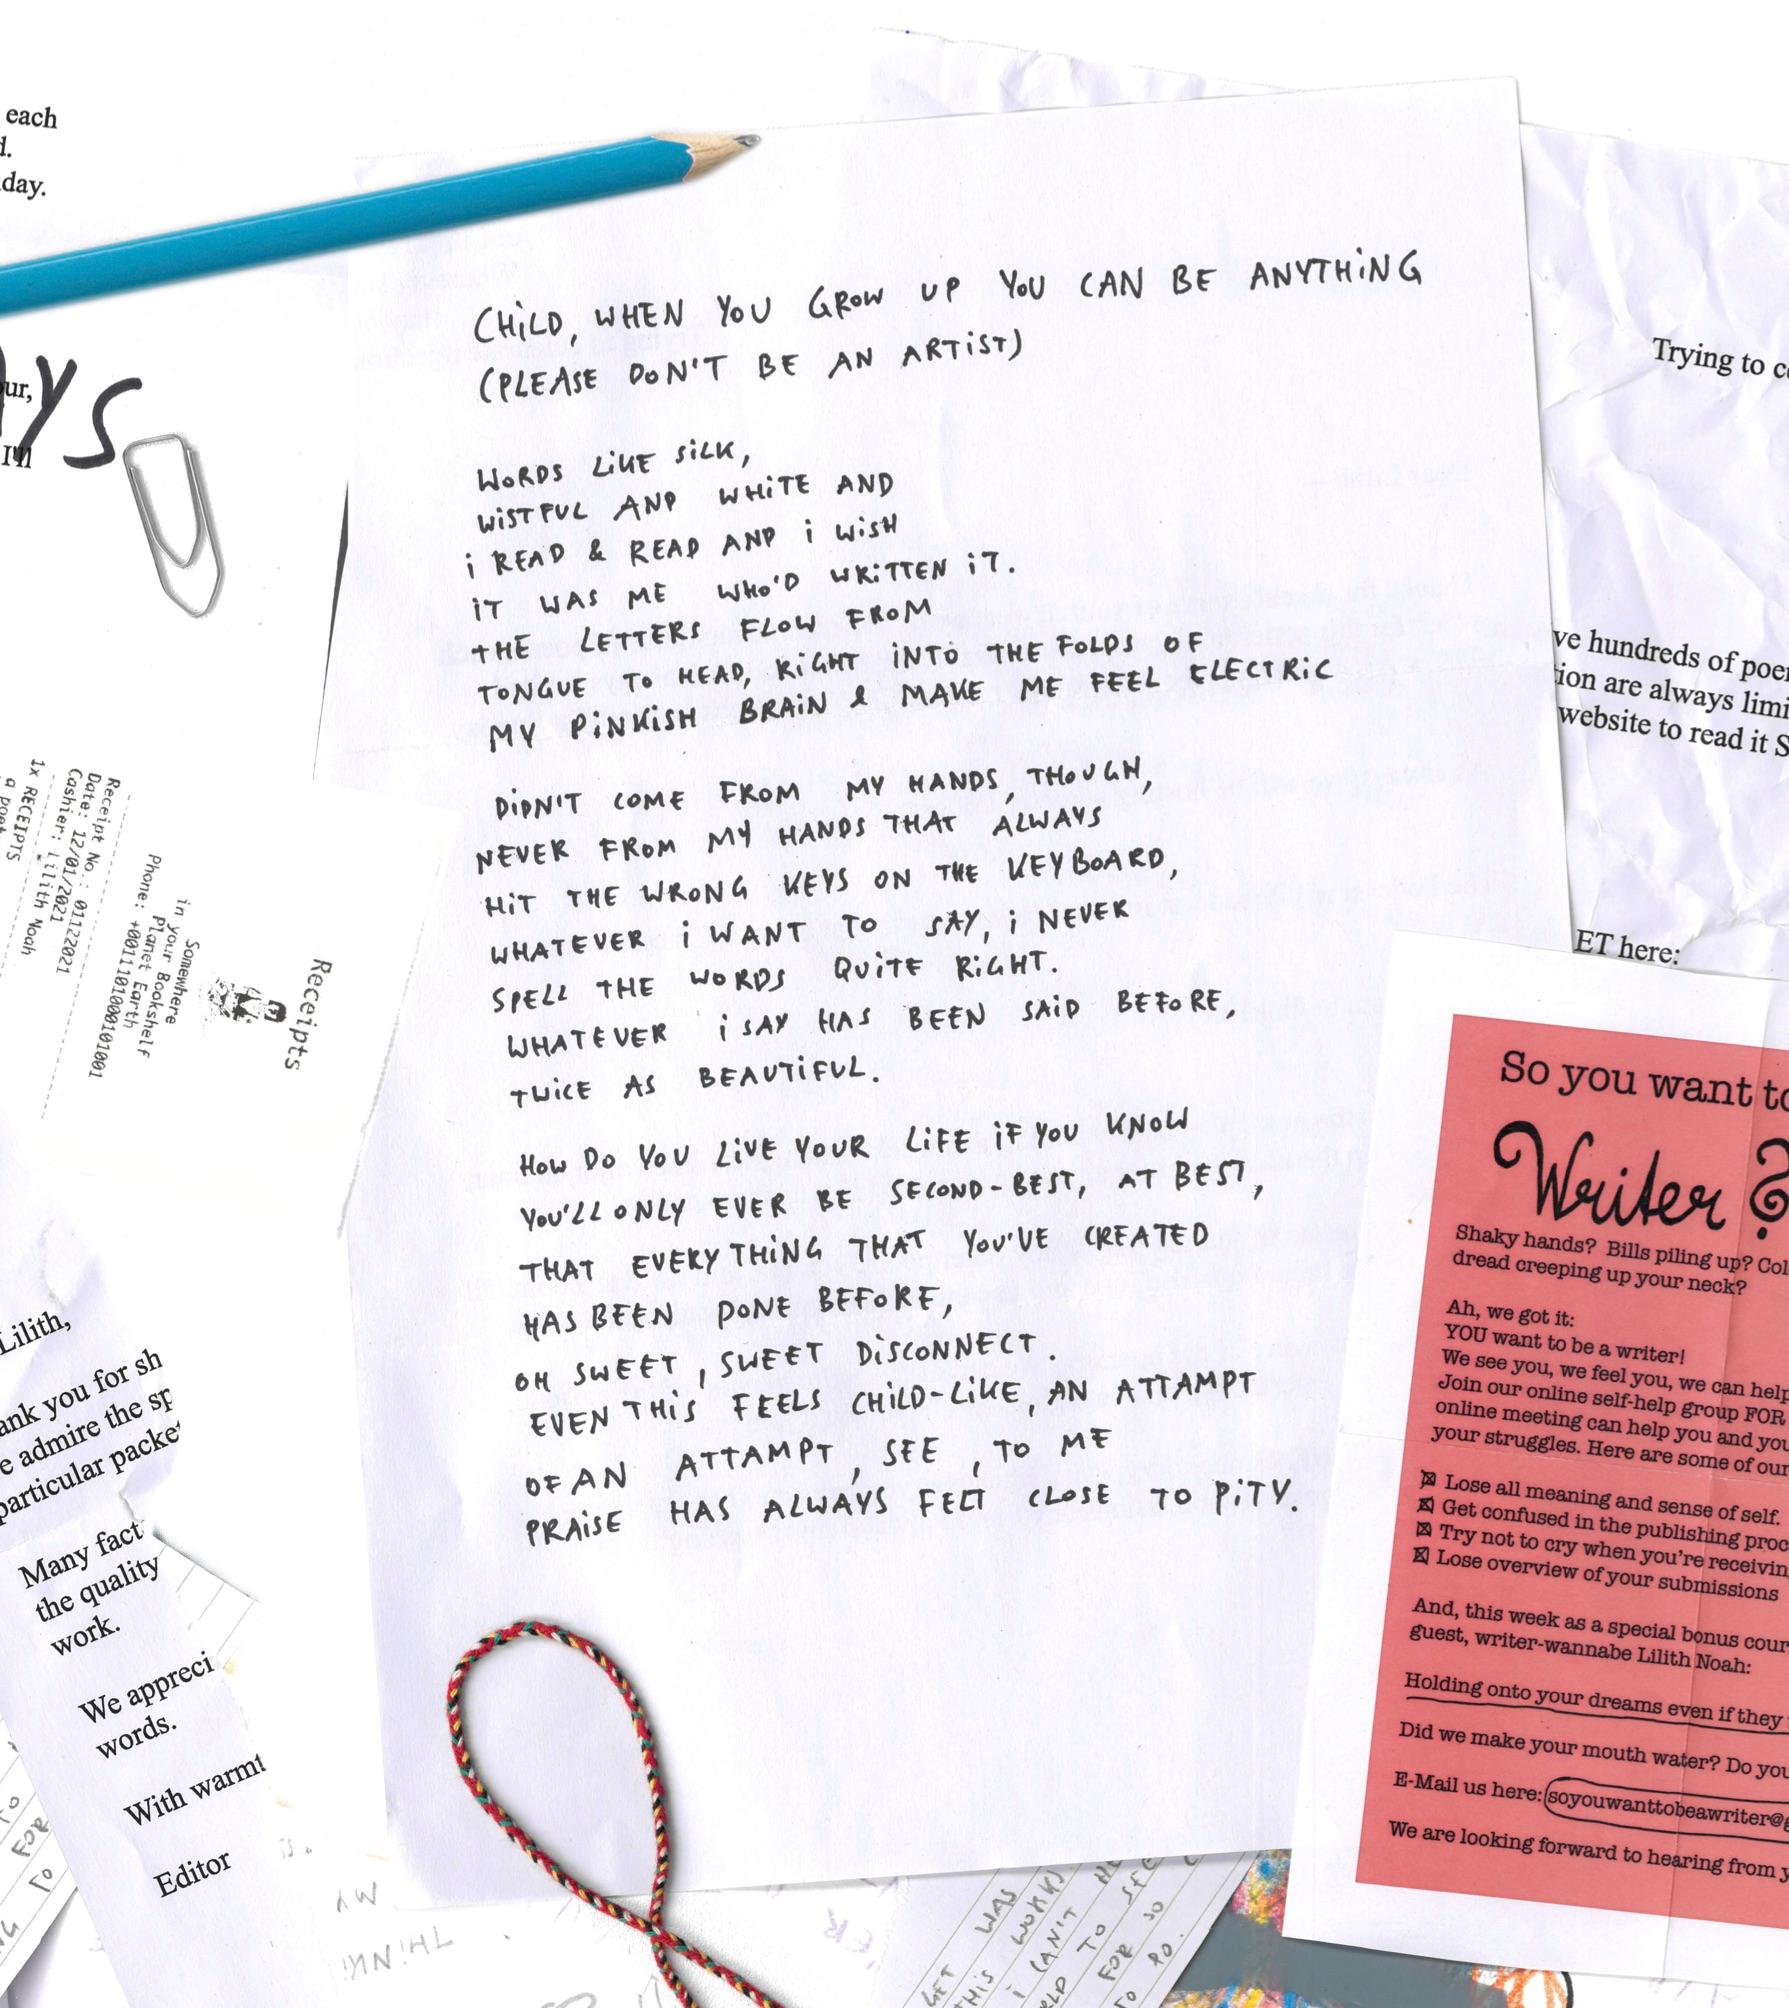 each
day.
YS
our,
I'll
CHiLD, WHEN YOU GROW UP YOU CAN BE ANYTHiNG
(PLEASE DON'T BE AN ARTiST)
WORDS LiKE SiLK,
WiSTFUL AND WHiTE AND
i READ & READ AND i WiSH
iT WAS ME WHO'D WRiTTEN iT.
THE LETTERS FLOW FROM
TONGUE TO HEAD, RiGHT iNTO THE FOLDS OF
MY PiNKiSH BRAiN & MAKE ME FEEL ELECTRiC
DiDN'T COME FROM MY HANDS, THOUGH,
NEVER FROM MY HANDS THAT ALWAYS
HiT THE WRONG KEYS ON THE KEYBOARD,
WHATEVER i WANT TO SAY, i NEVER
SPELL THE WORDS QUiTE RiGHT.
WHATEVER i SAY HAS BEEN SAiD BEFORE,
TWiCE AS BEAUTiFUL.
HOW DO YOU LiVE YOUR LiFE iF YOU KNOW
YOU'LL ONLY EVER BE SECOND-BEST, AT BEST,
THAT EVERYTHiNG THAT YOU'VE CREATED
HAS BEEN DONE BEFORE,
OH SWEET, SWEET DiSCONNECT.
EVEN THiS FEELS CHiLD-LiKE, AN ATTAMPT
OF AN ATTAMPT, SEE, TO ME
PRAiSE HAS ALWAYS FELT CLOSE TO PiTY.
Receipts
Somewhere
in your Bookshelf
Planet Earth
Phone: +001110100010101001
Receipt No.: 01122021
Date: 12/01/2021
Cashier: Lilith Noah
1x RECEIPTS
a poet
Lilith,
ank you for sh
e admire the sp
particular packe
Many fact
the quality
work.
We appreci
words.
With warmt
Editor
Trying to c
ve hundreds of poe
ion are always limi
website to read it S
ET here:
So you want to
Writer?
Shaky hands? Bills piling up? Col
dread creeping up your neck?
Ah, we got it:
YOU want to be a writer!
We see you, we feel you, we can help
Join our online self-help group FOR
online meeting can help you and you
your struggles. Here are some of our
☒ Lose all meaning and sense of self.
☒ Get confused in the publishing proc
☒ Try not to cry when you're receivin
☒ Lose overview of your submissions
And, this week as a special bonus cour
guest, writer-wannabe Lilith Noah:
Holding onto your dreams even if they
Did we make your mouth water? Do you
E-Mail us here: soyouwanttobeawriter@g
We are looking forward to hearing from y
MY
THiNK
GET WAS
THiS WORK
i CAN'T
TO
FOR SO